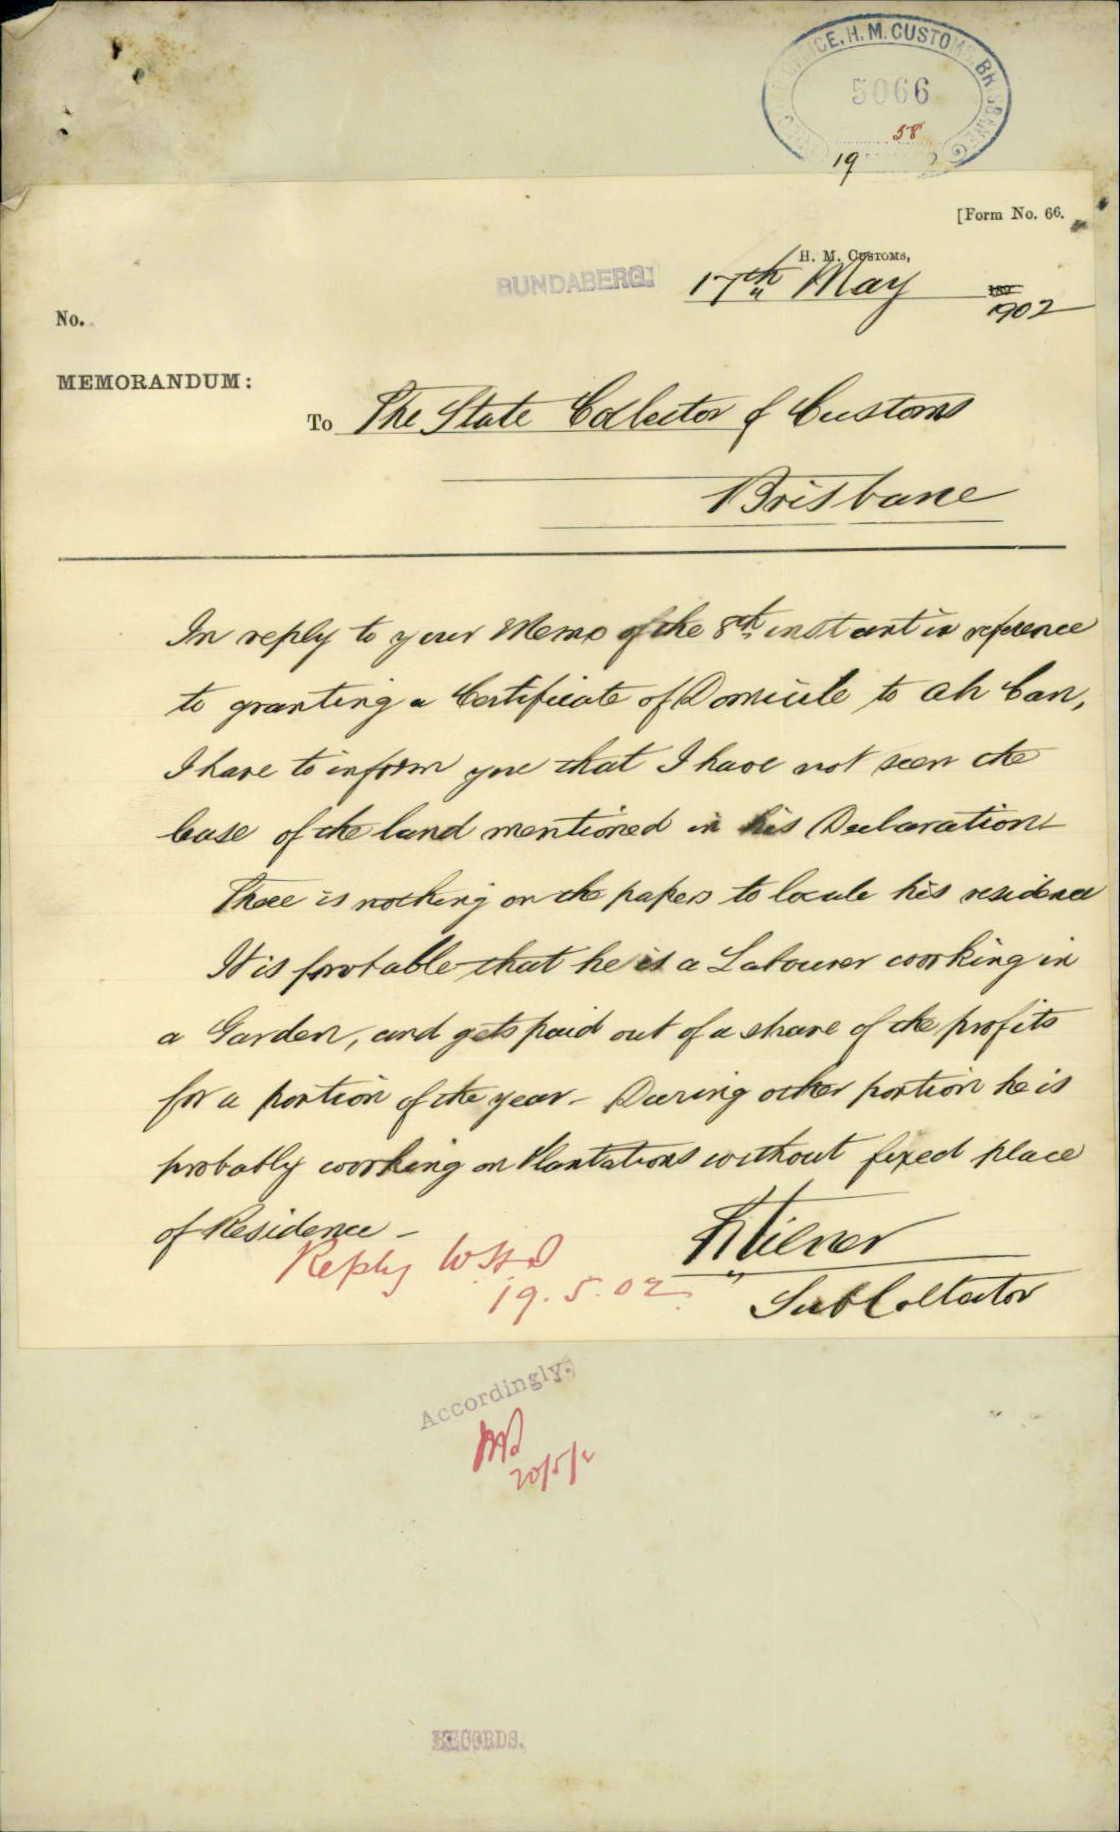 OFFICE, H. M. CUSTOMS, BRISBANE
5066
58
19
[Form No. 66.
H. M. Customs,
BUNDABERG.
17th May 189
1902
No.
MEMORANDUM:
To The State Collector of Customs
Brisbane
In reply to your Memo of the 8th instant in reference
to granting a Certificate of Domicile to Ah Can,
I have to inform you that I have not seen the
lease of the land mentioned in his Declaration
There is nothing on the papers to locate his residence
It is probable that he is a Labourer working in
a Garden, and gets paid out of a share of the profits
for a portion of the year - During other portion he is
probably working on Plantations without fixed place
of Residence -
Milner
Sub Collector
Reply
19.5.02
Accordingly,
20/5/2
RECORDS.